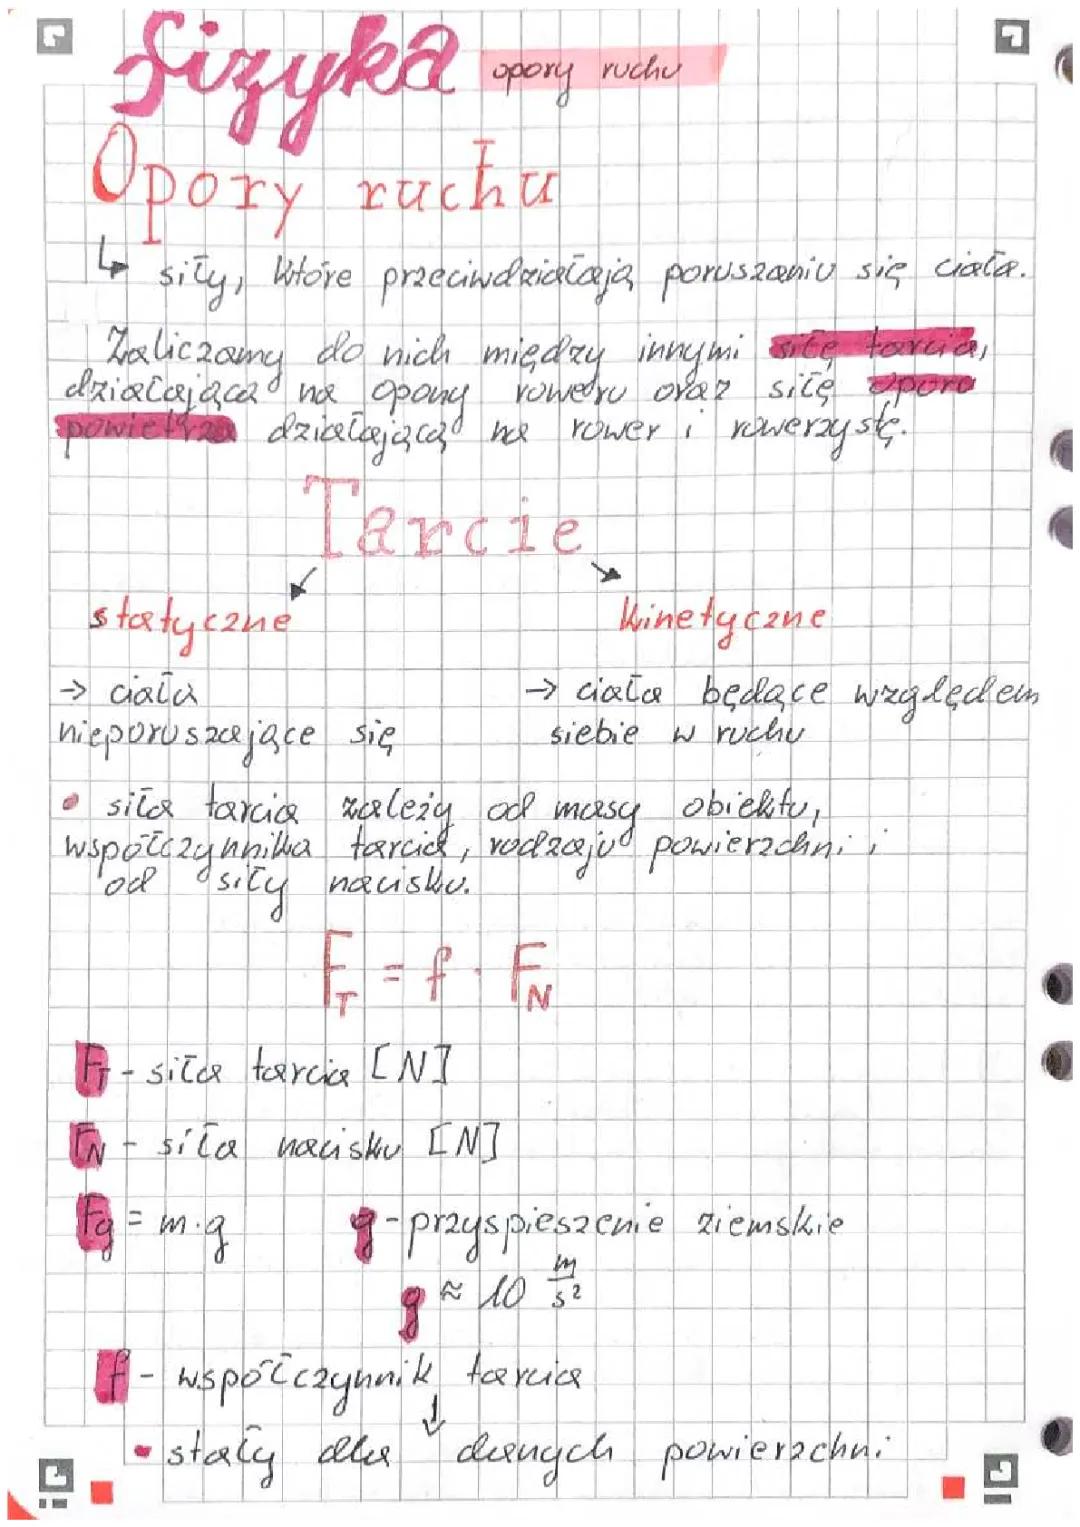 fizyka opory ruchu
Opory ruchu
↳ siły, które przeciwdziałają poruszaniu się ciała.
Zaliczamy do nich między innymi siłę tarcia,
działającą na opony roweru oraz siłę oporu
powietrza działającą na rower i rowerzystę.
Tarcie
statyczne
kinetyczne
→ ciała
nieporuszające się
→ ciała będące względem
siebie w ruchu
• siła tarcia zależy od masy obiektu,
współczynnika tarcia, rodzaju powierzchni i
od siły nacisku.
F_T = f · F_N
F_T - siła tarcia [N]
F_N - siła nacisku [N]
Fg = m·g g - przyspieszenie ziemskie
g ≈ 10 m/s²
f - współczynnik tarcia
↓
• stały dla danych powierzchni